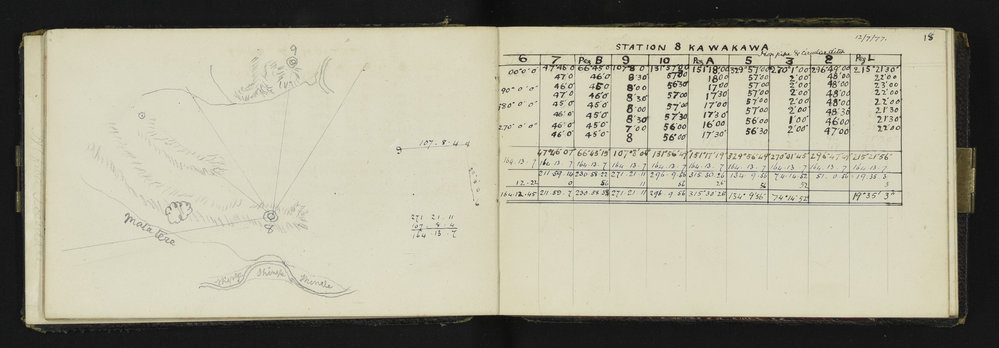 9
107 . 8 . 4
9
8
Matatere
Shingle
Shingle
271 21 . 11
107 . 8 . 4
164 13 . 7
12/7/77.
18
STATION 8 KAWAKAWA
6 7 Peg B 9 10 Peg A 5 3 2 Peg L
00°0'0" 47°46'0 66°45'0 107°8'0 131°57'00 151°18'00 329°57'00 270°1'00 296°49'00 215°21'30"
47'0 46'0 8'30" 57'00 18'00 57'00 2'00 48'00 22'00
90°0'0" 46'0 46'0 8'00 56'30 17'00 57'00 2'00 48'00 23'00
47'0 46'0 8'30 57'00 17'30 57'00 2'00 48'00 22'00
180°0'0" 45'0 45'0 8'00 57'00 17'00 56'00 2'00 48'30 22'00
46'0 45'0 8'30 57'30 17'30 56'00 1'00 46'00 21'30
270°0'0" 46'0 45'0 7'00 56'00 16'00 56'00 2'00 47'00 22'00
46'0 45'0 8 56'00 17'30 56'30
47°46'07" 66°45'15 107°8'04 131°56'49 151°17'19 329°56'49 270°01'45 215°21'56"
164.13.7 164.13.7 164.13.7 164.13.7 164.13.7 164.13.7 164.13.7 164.13.7 164.13.7 164.13.7
211.59.14 230.58.22 271.21.11 296.9.56 315.30.26 134.9.56 74.14.52 19.35.3
12.22
164.12.45 211.59.7 230.58.58 271.21.11 296.9.56 315.30.26 134°9'56" 74°14'52" 19°35'3"